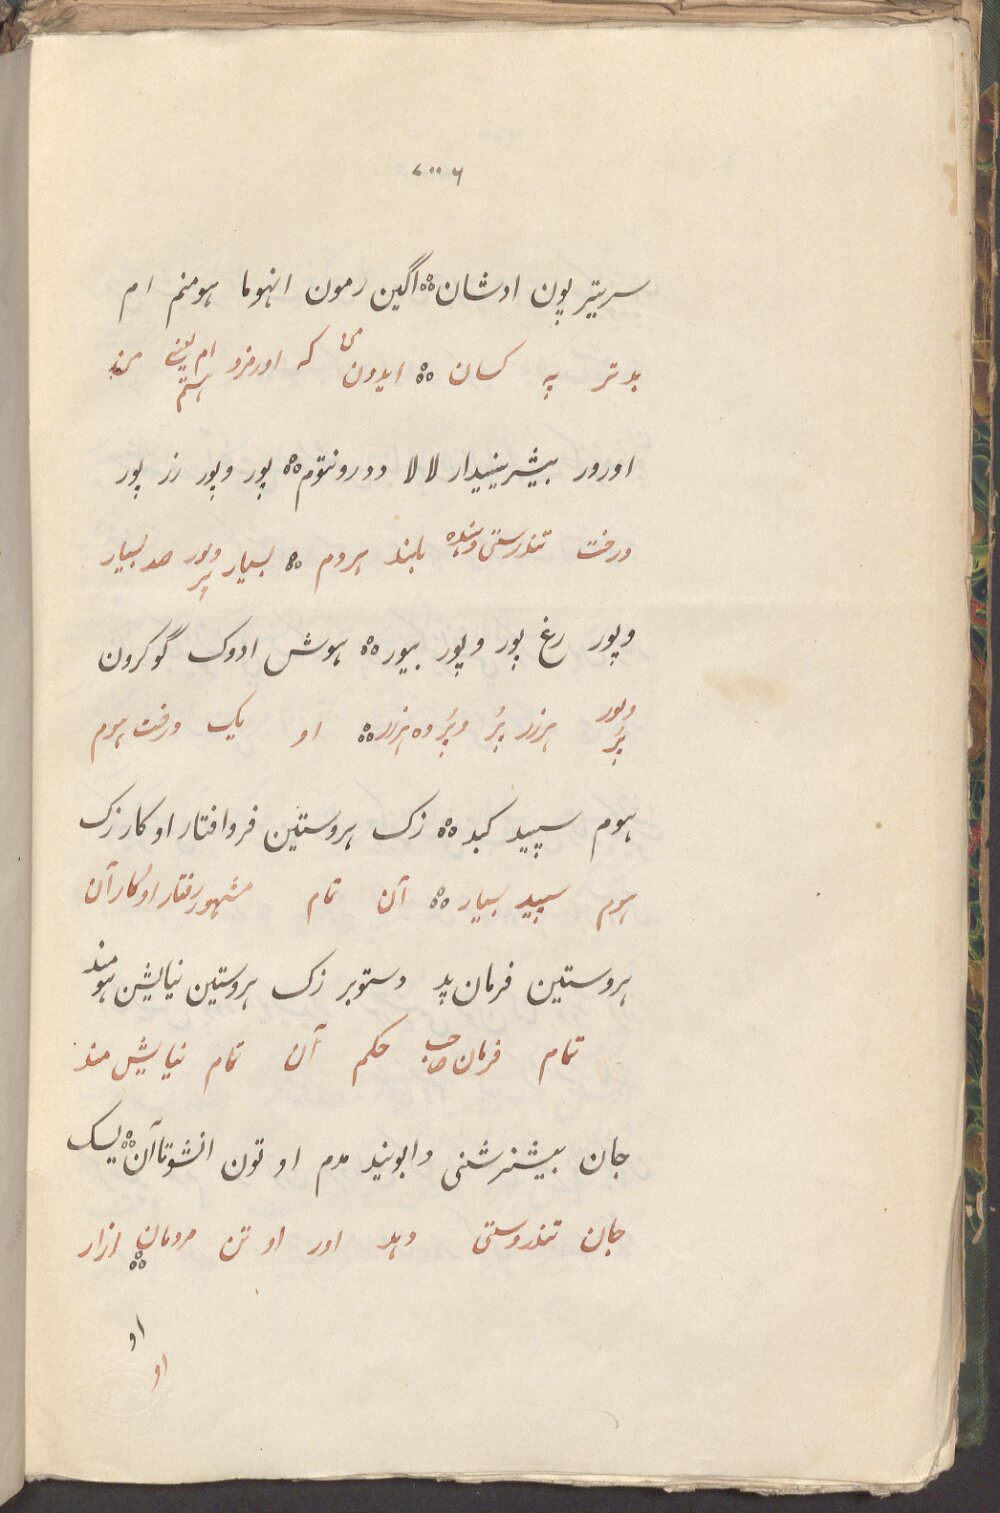 سریتر پون اوشان ⁘ آگین رمون انهوما هومنم ام
بدتر به کسان ⁘ ایدون که اورمزد ام یعنے هستم
اورور بیشزینیدار لالا دورونتوم ⁘ پور وپور رز پور
درخت تندرستی دهنده بلند هردم ⁘ بسیار وپور پر صد بسیار
وپور رغ پور وپور بیور ⁘ هوش ادوک گوکرون
وپور پُر هزار پُر وپُر ده هزار ⁘ او یک درخت هوم
هوم سپید کبد ⁘ زک هروستین فروافتار اوکار زک
هوم سپید بسیار ⁘ آن تمام مشهور رفتار اوکار آن
هروستین فرمان پد دستوبر زک هروستین نیایشن هومند
تمام فرمان صاحب حکم آن تمام نیایش مند
جان بیشزشنی دابونید مدم او تون انشوتاآن ⁘ یسک
جان تندروستی دهد اور او تن مردمان ⁘ ازار
او
او